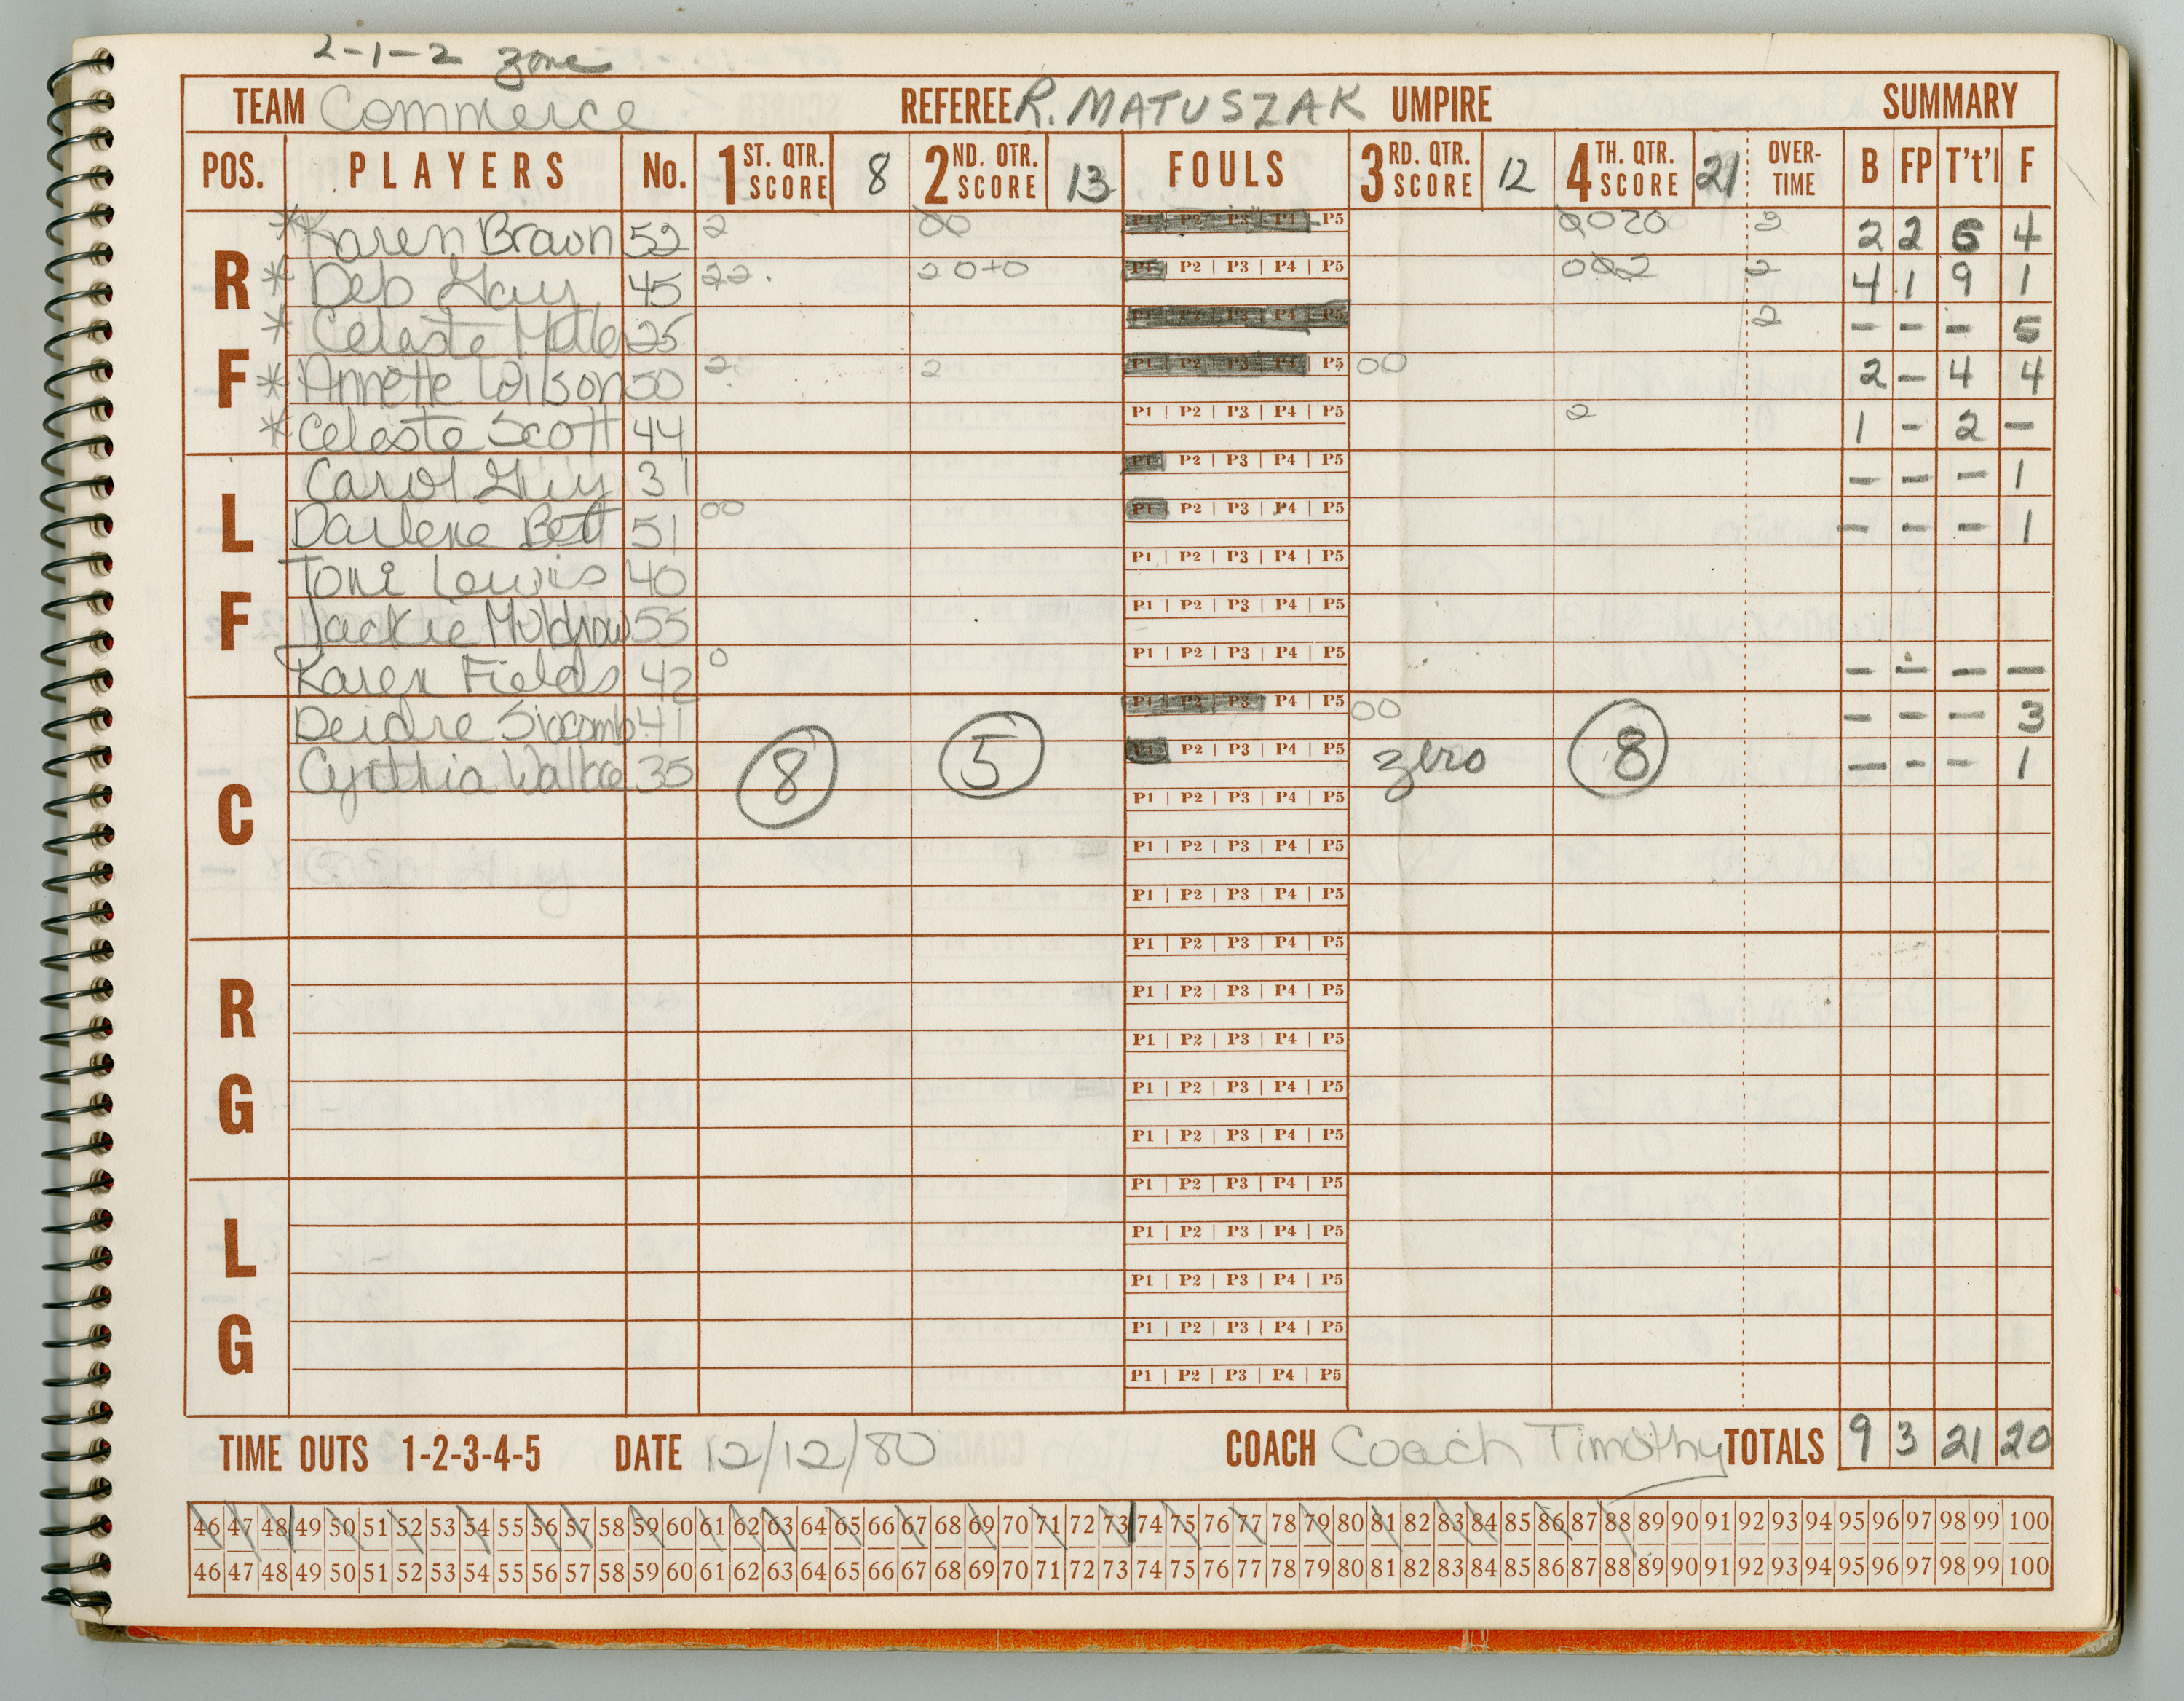 2-1-2 zone
TEAM Commerce REFEREE R. MATUSZAK UMPIRE SUMMARY
POS. PLAYERS No. 1 ST. QTR. SCORE 8 2 ND. QTR. SCORE 13 FOULS 3 RD. QTR. SCORE 12 4 TH. QTR. SCORE 21 OVER-TIME B FP T't'l F
R F
* Karen Brown 52 2 00 P1 P2 P3 P4 P5 2020 2 2 2 6 4
* Deb Guy 45 22 20+0 P1 | P2 | P3 | P4 | P5 002 2 4 1 9 1
* Celeste 25 P1 P2 P3 P4 P5 2 - - - 5
* Annette Wilson 50 2 2 P1 P2 P3 P4 P5 00 2 - 4 4
* Celeste Scott 44 P1 | P2 | P3 | P4 | P5 2 1 - 2 -
L F
Carol Guy 31 P1 | P2 | P3 | P4 | P5 - - - 1
Darlene Bett 51 00 P1 | P2 | P3 | P4 | P5 - - - 1
Toni Lewis 40 P1 | P2 | P3 | P4 | P5
Jackie Muldrow 55 P1 | P2 | P3 | P4 | P5
Karen Fields 42 0 P1 | P2 | P3 | P4 | P5 - - - -
C
Deidre 41 P1 P2 P3 P4 | P5 00 - - - 3
Cynthia Walker 35 8 5 P1 | P2 | P3 | P4 | P5 zero 8 - - - 1
P1 | P2 | P3 | P4 | P5
P1 | P2 | P3 | P4 | P5
P1 | P2 | P3 | P4 | P5
R G
P1 | P2 | P3 | P4 | P5
P1 | P2 | P3 | P4 | P5
P1 | P2 | P3 | P4 | P5
P1 | P2 | P3 | P4 | P5
P1 | P2 | P3 | P4 | P5
L G
P1 | P2 | P3 | P4 | P5
P1 | P2 | P3 | P4 | P5
P1 | P2 | P3 | P4 | P5
P1 | P2 | P3 | P4 | P5
P1 | P2 | P3 | P4 | P5
TIME OUTS 1-2-3-4-5 DATE 12/12/80 COACH Coach Timothy TOTALS 9 3 21 20
46 47 48 49 50 51 52 53 54 55 56 57 58 59 60 61 62 63 64 65 66 67 68 69 70 71 72 73 74 75 76 77 78 79 80 81 82 83 84 85 86 87 88 89 90 91 92 93 94 95 96 97 98 99 100
46 47 48 49 50 51 52 53 54 55 56 57 58 59 60 61 62 63 64 65 66 67 68 69 70 71 72 73 74 75 76 77 78 79 80 81 82 83 84 85 86 87 88 89 90 91 92 93 94 95 96 97 98 99 100